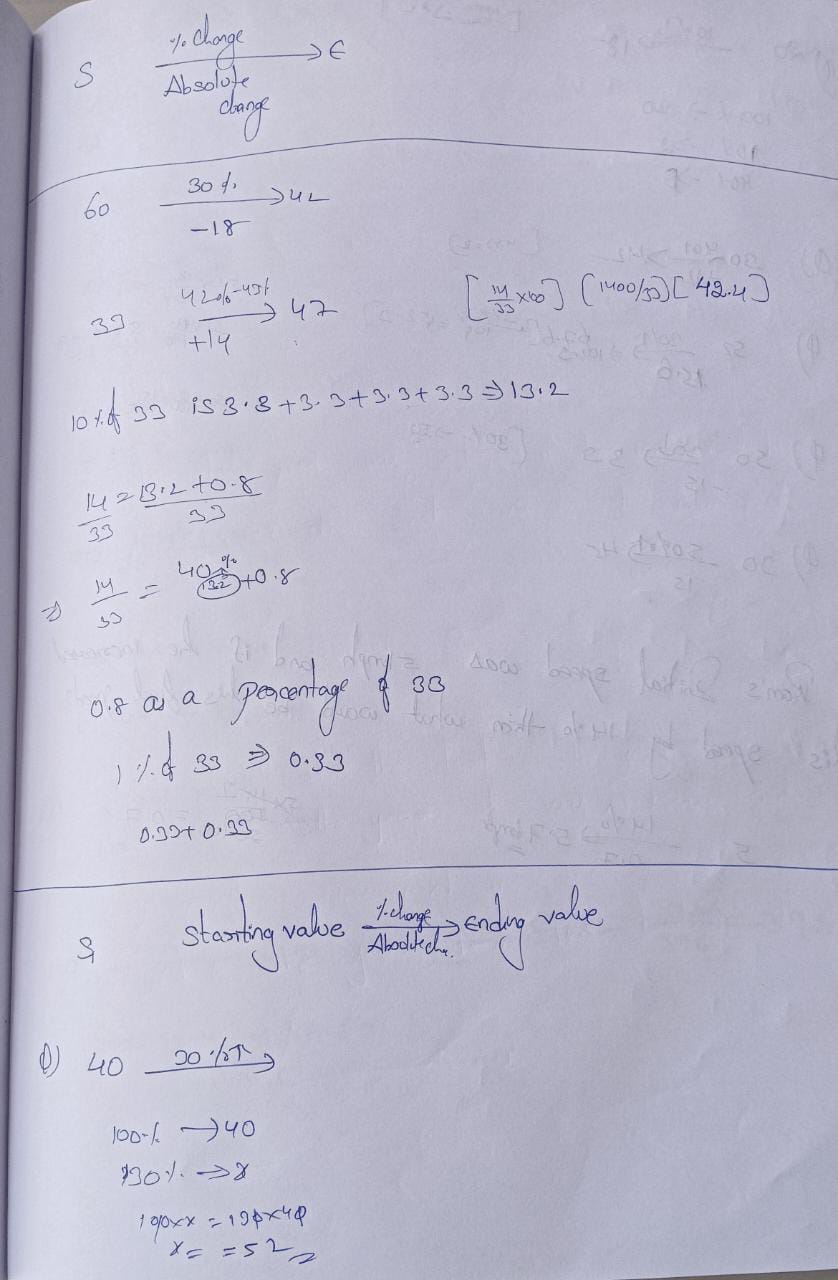 S % Change → E
Absolute
change
60 30% → 42
-18
33 42%-43% → 47 [14/33 x100] (1400/33) [42.4]
+14
10% of 33 is 3.3+3.3+3.3+3.3 ⇒ 13.2
14/33 = 13.2+0.8/33
⇒ 14/33 = 40% 13.2 +0.8
0.8 as a percentage of 33
1% of 33 ⇒ 0.33
0.33+0.33
Starting value %.change → Ending value
Q) 40 30%↑ →
100% → 40
130% → x
100xx = 130x40
x= =52